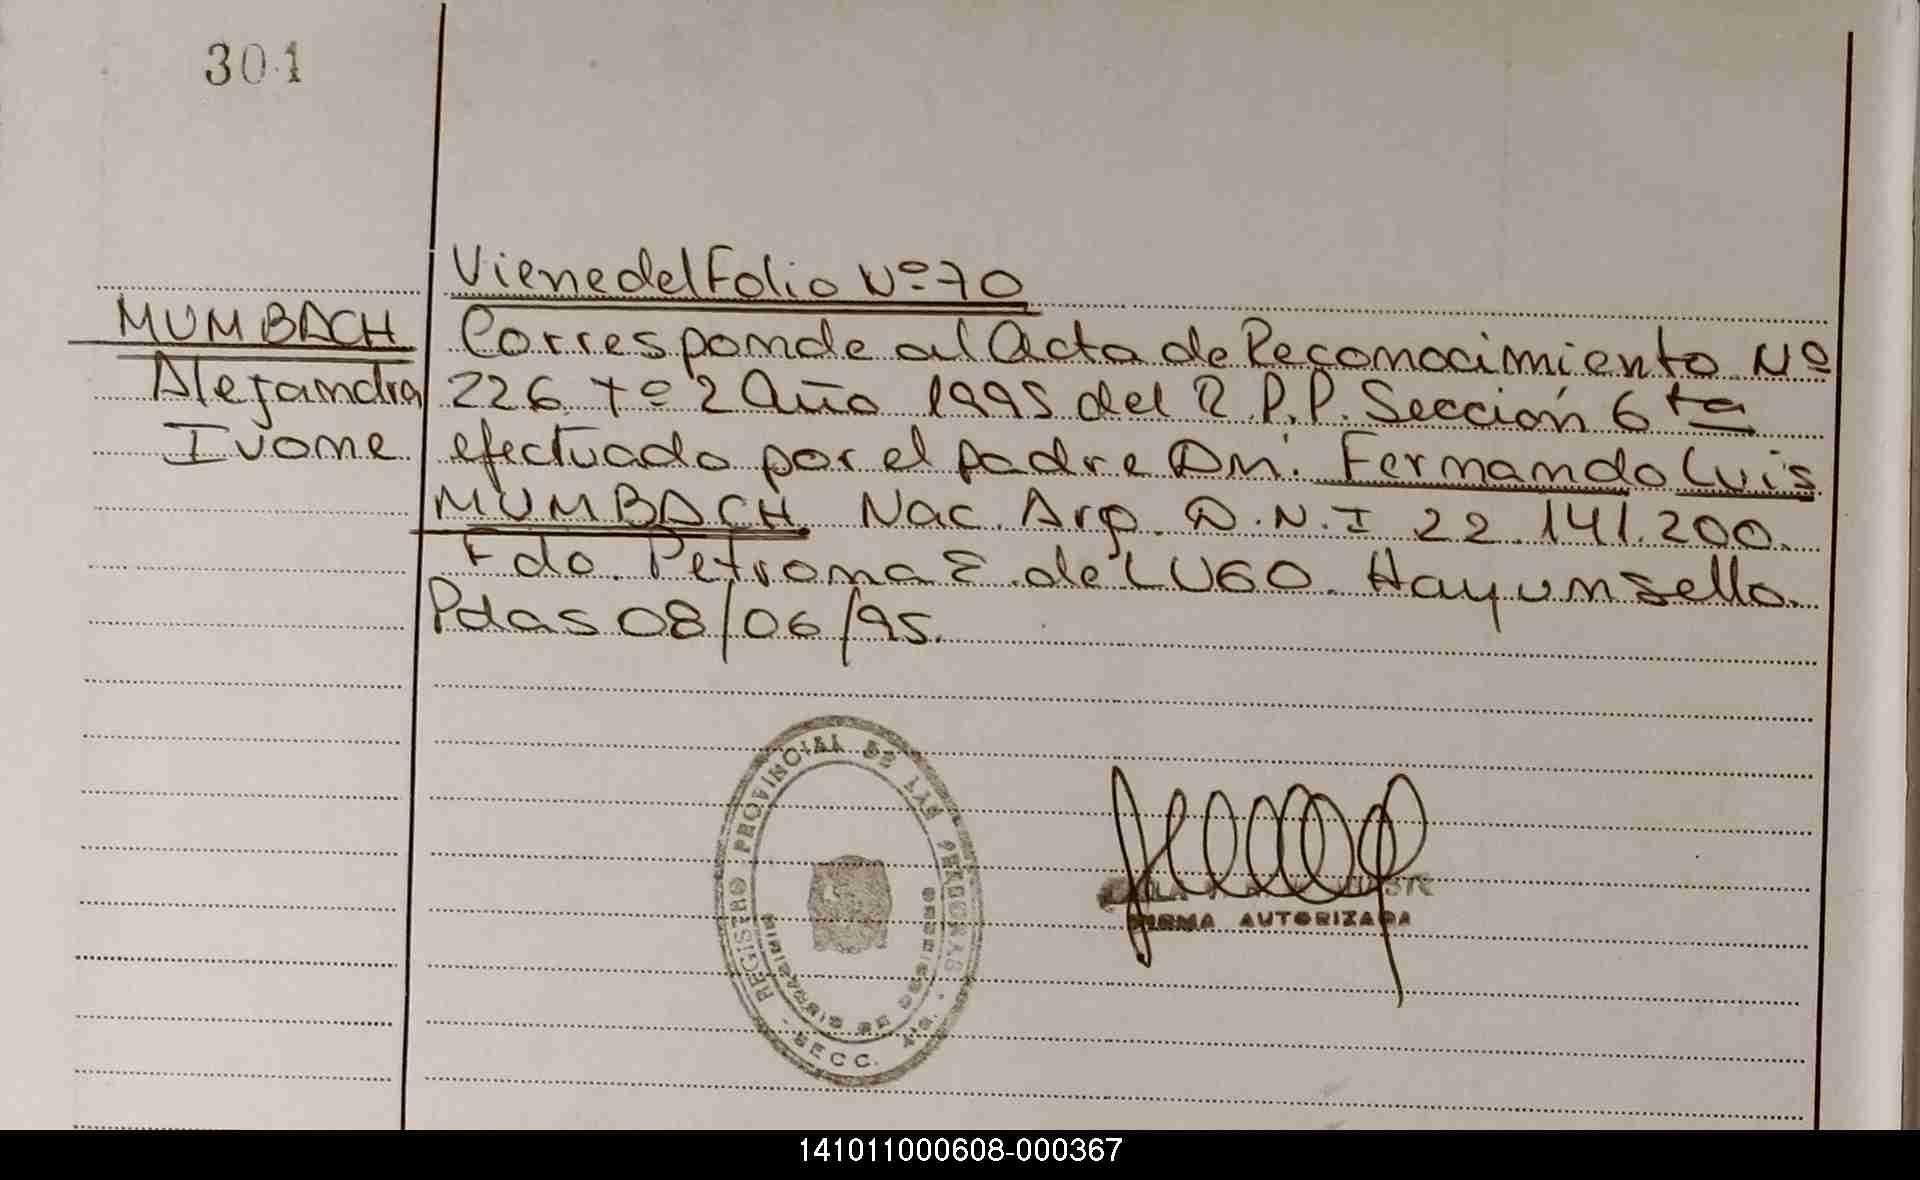 301
Viene del Folio Nº 70
MUMBACH
Alejandra
Ivone
Corresponde al Acta de Reconocimiento Nº
226 Tº 2 Año 1995 del R.P.P. Sección 6ta
efectuado por el padre Dn: Fernando Luis
MUMBACH. Nac. Arg. D.N.I 22.141.200.
Fdo. Petrona E. de LUGO. Hay un sello.
Pdas 08/06/95.
REGISTRO PROVINCIAL DE LAS PERSONAS
SECC.
FIRMA AUTORIZADA
141011000608-000367